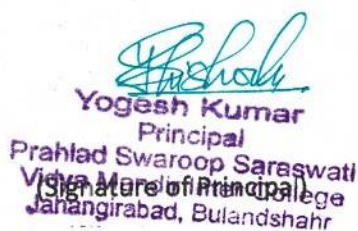 Yogesh Kumar
Principal
Prahlad Swaroop Saraswati
Vidya Mandir College
(Signature of Principal)
Jahangirabad, Bulandshahr